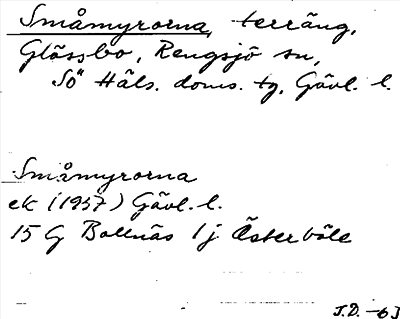 Småmyrorna, terräng,
Glössbo, Rengsjö sn,
Sö Häls. doms. tg, Gävl. l.
Småmyrorna
ek (1957) Gävl. l.
15 G Bollnäs 1j Österböle
J.D. -63